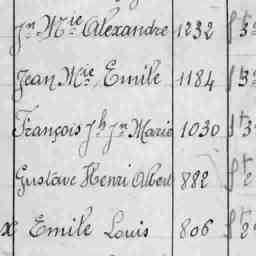 Jn Mie Alexandre 1232
Jean Mie, Emile 1184
François Jh Jn Marie 1030
Gustave Henri Albert 882
x Emile Louis 806